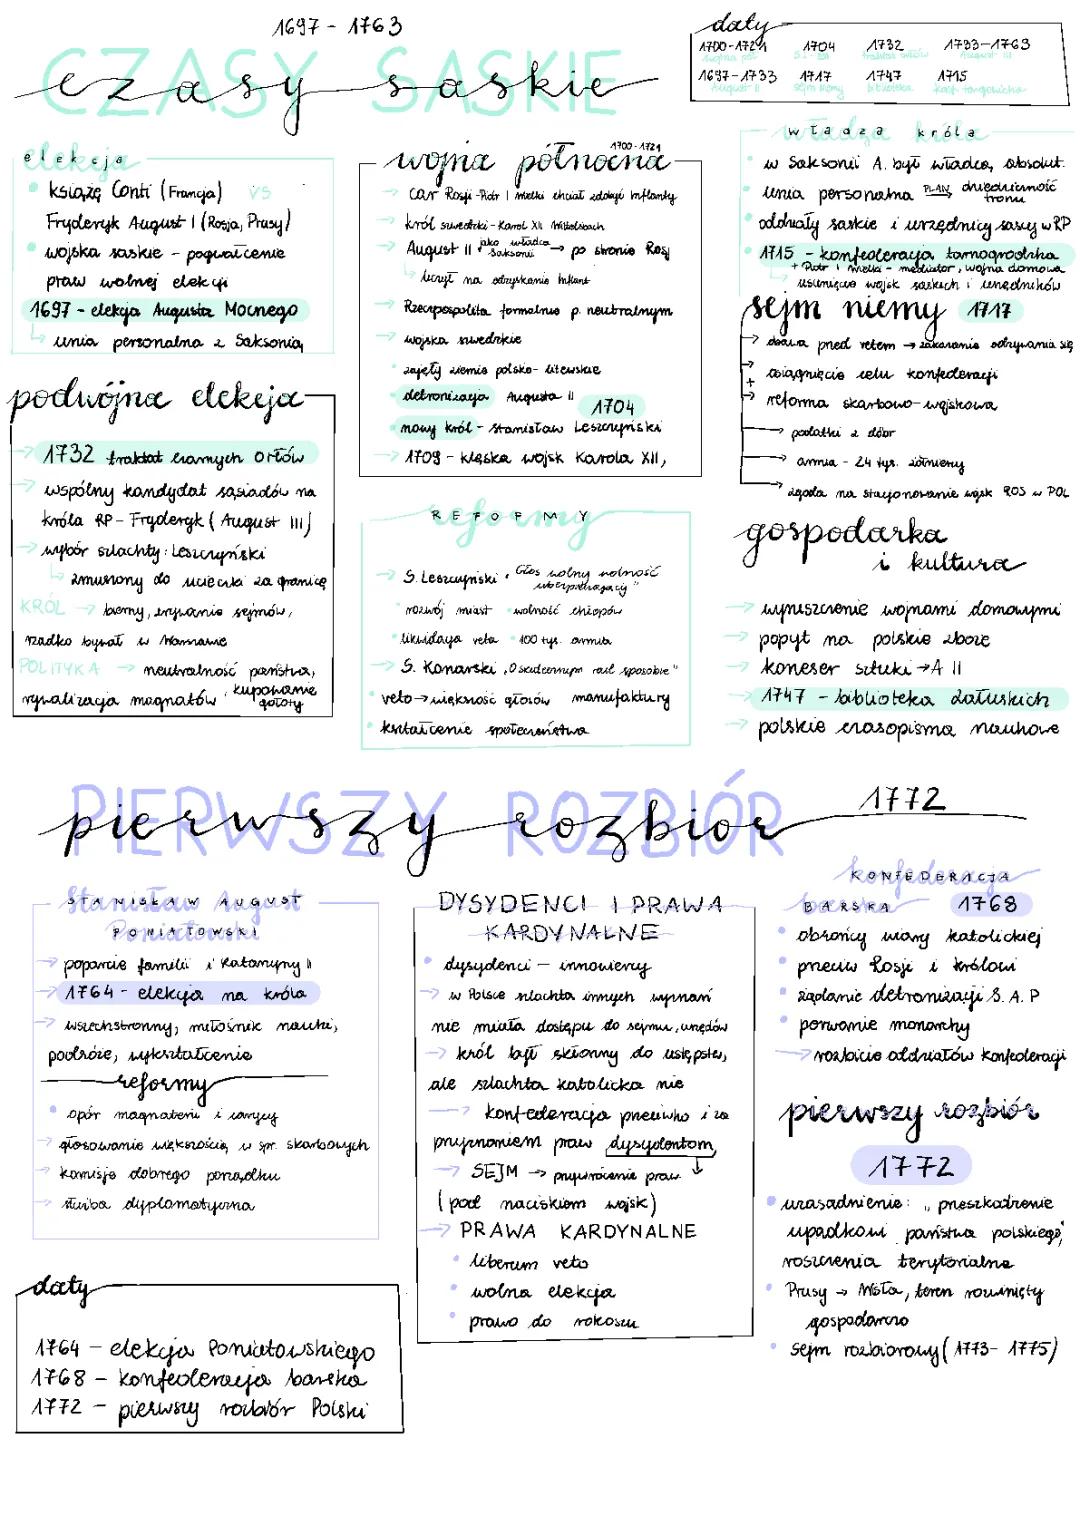 1697 - 1763
czasy saskie
daty
1700-1721 1704 1732 1733-1763
1697-1733 1717 1747 1715
August II sejm niemy biblioteka
elekcja
książę Conti (Francja) VS
Fryderyk August I (Rosja, Prusy)
wojska saskie - pogwałcenie
praw wolnej elekcji
1697 - elekcja Augusta Mocnego
unia personalna z Saksonią
podwójna elekcja
→ 1732 traktat czarnych orłów
→ wspólny kandydat sąsiadów na
króla RP - Fryderyk (August III)
→ wybór szlachty: Leszczyński
↳ zmuszony do ucieczki za granicę
KRÓL → bierny, zrywanie sejmów,
rzadko bywał w Warszawie
POLITYKA → neutralność państwa,
rywalizacja magnatów, kupowanie
głosów
wojna północna 1700-1721
→ car Rosji - Piotr I wielki chciał zdobyć Inflanty
→ król szwedzki - Karol XII Wittelsbach
→ August II jako władca Saksonii → po stronie Rosji
↳ liczył na odzyskanie Inflant
→ Rzeczpospolita formalnie p. neutralnym
→ wojska szwedzkie
zajęły ziemie polsko-litewskie
detronizacja Augusta II 1704
nowy król - Stanisław Leszczyński
→ 1709 - klęska wojsk Karola XII,
REFORMY
→ S. Leszczyński "Głos wolny wolność
ubezpieczający"
rozwój miast wolność chłopów
likwidacja veta 100 tys. armia
→ S. Konarski "O skutecznym rad sposobie"
veto → większość głosów manufaktury
kształcenie społeczeństwa
władza króla
w Saksonii A. był władcą absolut.
unia personalna PLAN → dziedziczność
tronu
oddziały saskie i urzędnicy sascy w RP
1715 - konfederacja tarnogrodzka
+ Piotr I wielki - mediator, wojna domowa
↳ usunięcie wojsk saskich i urzędników
sejm niemy 1717
→ obawa przed vetem → zakazanie odzywania się
→ osiągnięcie celu konfederacji
+
→ reforma skarbowo-wojskowa
→ podatki z dóbr
→ armia - 24 tys. żołnierzy
→ zgoda na stacjonowanie wojsk ROS w POL
gospodarka
i kultura
→ wyniszczenie wojnami domowymi
→ popyt na polskie zboże
→ koneser sztuki → A II
→ 1747 - biblioteka Załuskich
→ polskie czasopisma naukowe
pierwszy rozbiór 1772
STANISŁAW AUGUST
PONIATOWSKI
→ poparcie familii i Katarzyny II
→ 1764 - elekcja na króla
→ wszechstronny, miłośnik nauki,
podróże, wykształcenie
reformy
opór magnaterii i carycy
→ głosowanie większością w spr. skarbowych
→ komisje dobrego porządku
→ służba dyplomatyczna
daty
1764 - elekcja Poniatowskiego
1768 - konfederacja barska
1772 - pierwszy rozbiór Polski
DYSYDENCI I PRAWA
KARDYNALNE
dysydenci - innowiercy
→ w Polsce szlachta innych wyznań
nie miała dostępu do sejmu, urzędów
→ król był skłonny do ustępstw,
ale szlachta katolicka nie
→ konfederacja przeciwko i za
przyznaniem praw dysydentom
→ SEJM → przywrócenie praw
(pod naciskiem wojsk)
→ PRAWA KARDYNALNE
liberum veto
wolna elekcja
prawo do rokoszu
KONFEDERACJA
BARSKA 1768
obrońcy wiary katolickiej
przeciw Rosji i królowi
żądanie detronizacji S. A. P
porwanie monarchy
→ rozbicie oddziałów konfederacji
pierwszy rozbiór
1772
uzasadnienie: "przeszkodzenie
upadkowi państwa polskiego",
roszczenia terytorialne
Prusy → Wisła, teren rozwinięty
gospodarczo
sejm rozbiorowy (1773-1775)